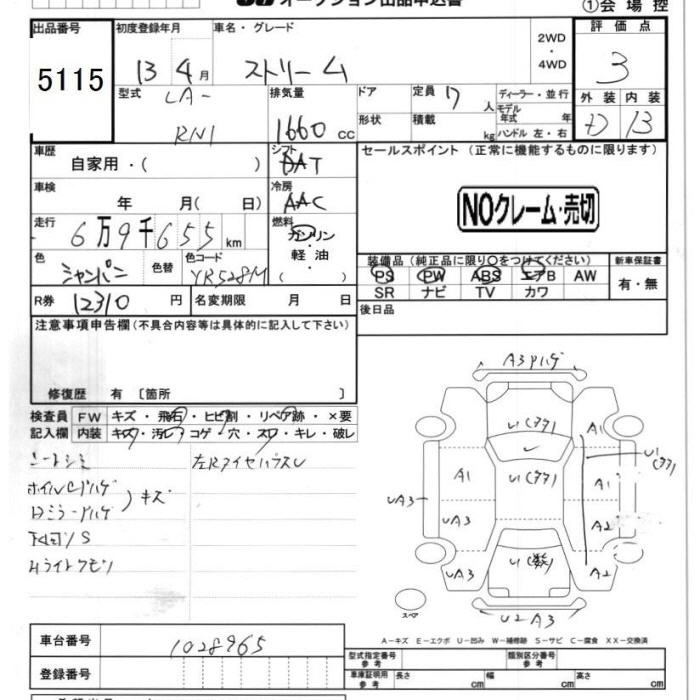 オークション出品申込書
①会場控
出品番号
5115
初度登録年月
13 4月
車名・グレード
ストリーム
2WD
・
4WD
評価点
3
型式
LA-
RN1
排気量
1660 cc
ドア
形状
定員 7 人
積載 kg
ディーラー・並行
モデル年式 年
ハンドル 左・右
外装 内装
D B
車歴
自家用・( )
シフト
DAT
セールスポイント (正常に機能するものに限ります)
NOクレーム・売切
車検
年 月( 日)
冷房
AAC
走行
6万9千655km
燃料
ガソリン
・
軽油
( )
色
シャンパン
色替
色コード
YR528M
装備品(純正品に限り○をつけてください)
PS PW ABS エアB AW
SR ナビ TV カワ
新車保証書
有・無
R券
12310円
名変期限 月 日
後日品
注意事項申告欄(不具合内容等は具体的に記入して下さい)
修復歴 有〔箇所 〕
検査員記入欄
FW キズ・飛石・ヒビ割・リペア跡・×要
内装 キズ・汚レ・コゲ・穴・スレ・キレ・破レ
シートシミ
キズ
A3ハゲ
U1
A1
U1
A1
U1
A1
UA3
UA3
A2
U1(数)
UA3
A2
U2A3
スペア
A-キズ E-エクボ U-凹み W-補修跡 S-サビ C-腐食 XX-交換済
車台番号
1028965
登録番号
型式指定番号
参考
類別区分番号
参考
車庫証明用
参考
長さ cm
幅 cm
高さ cm